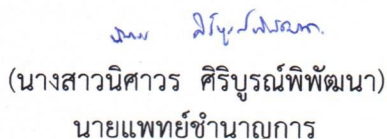 (นางสาวนิศาวร ศิริบูรณ์พิพัฒนา)
นายแพทย์ชำนาญการ